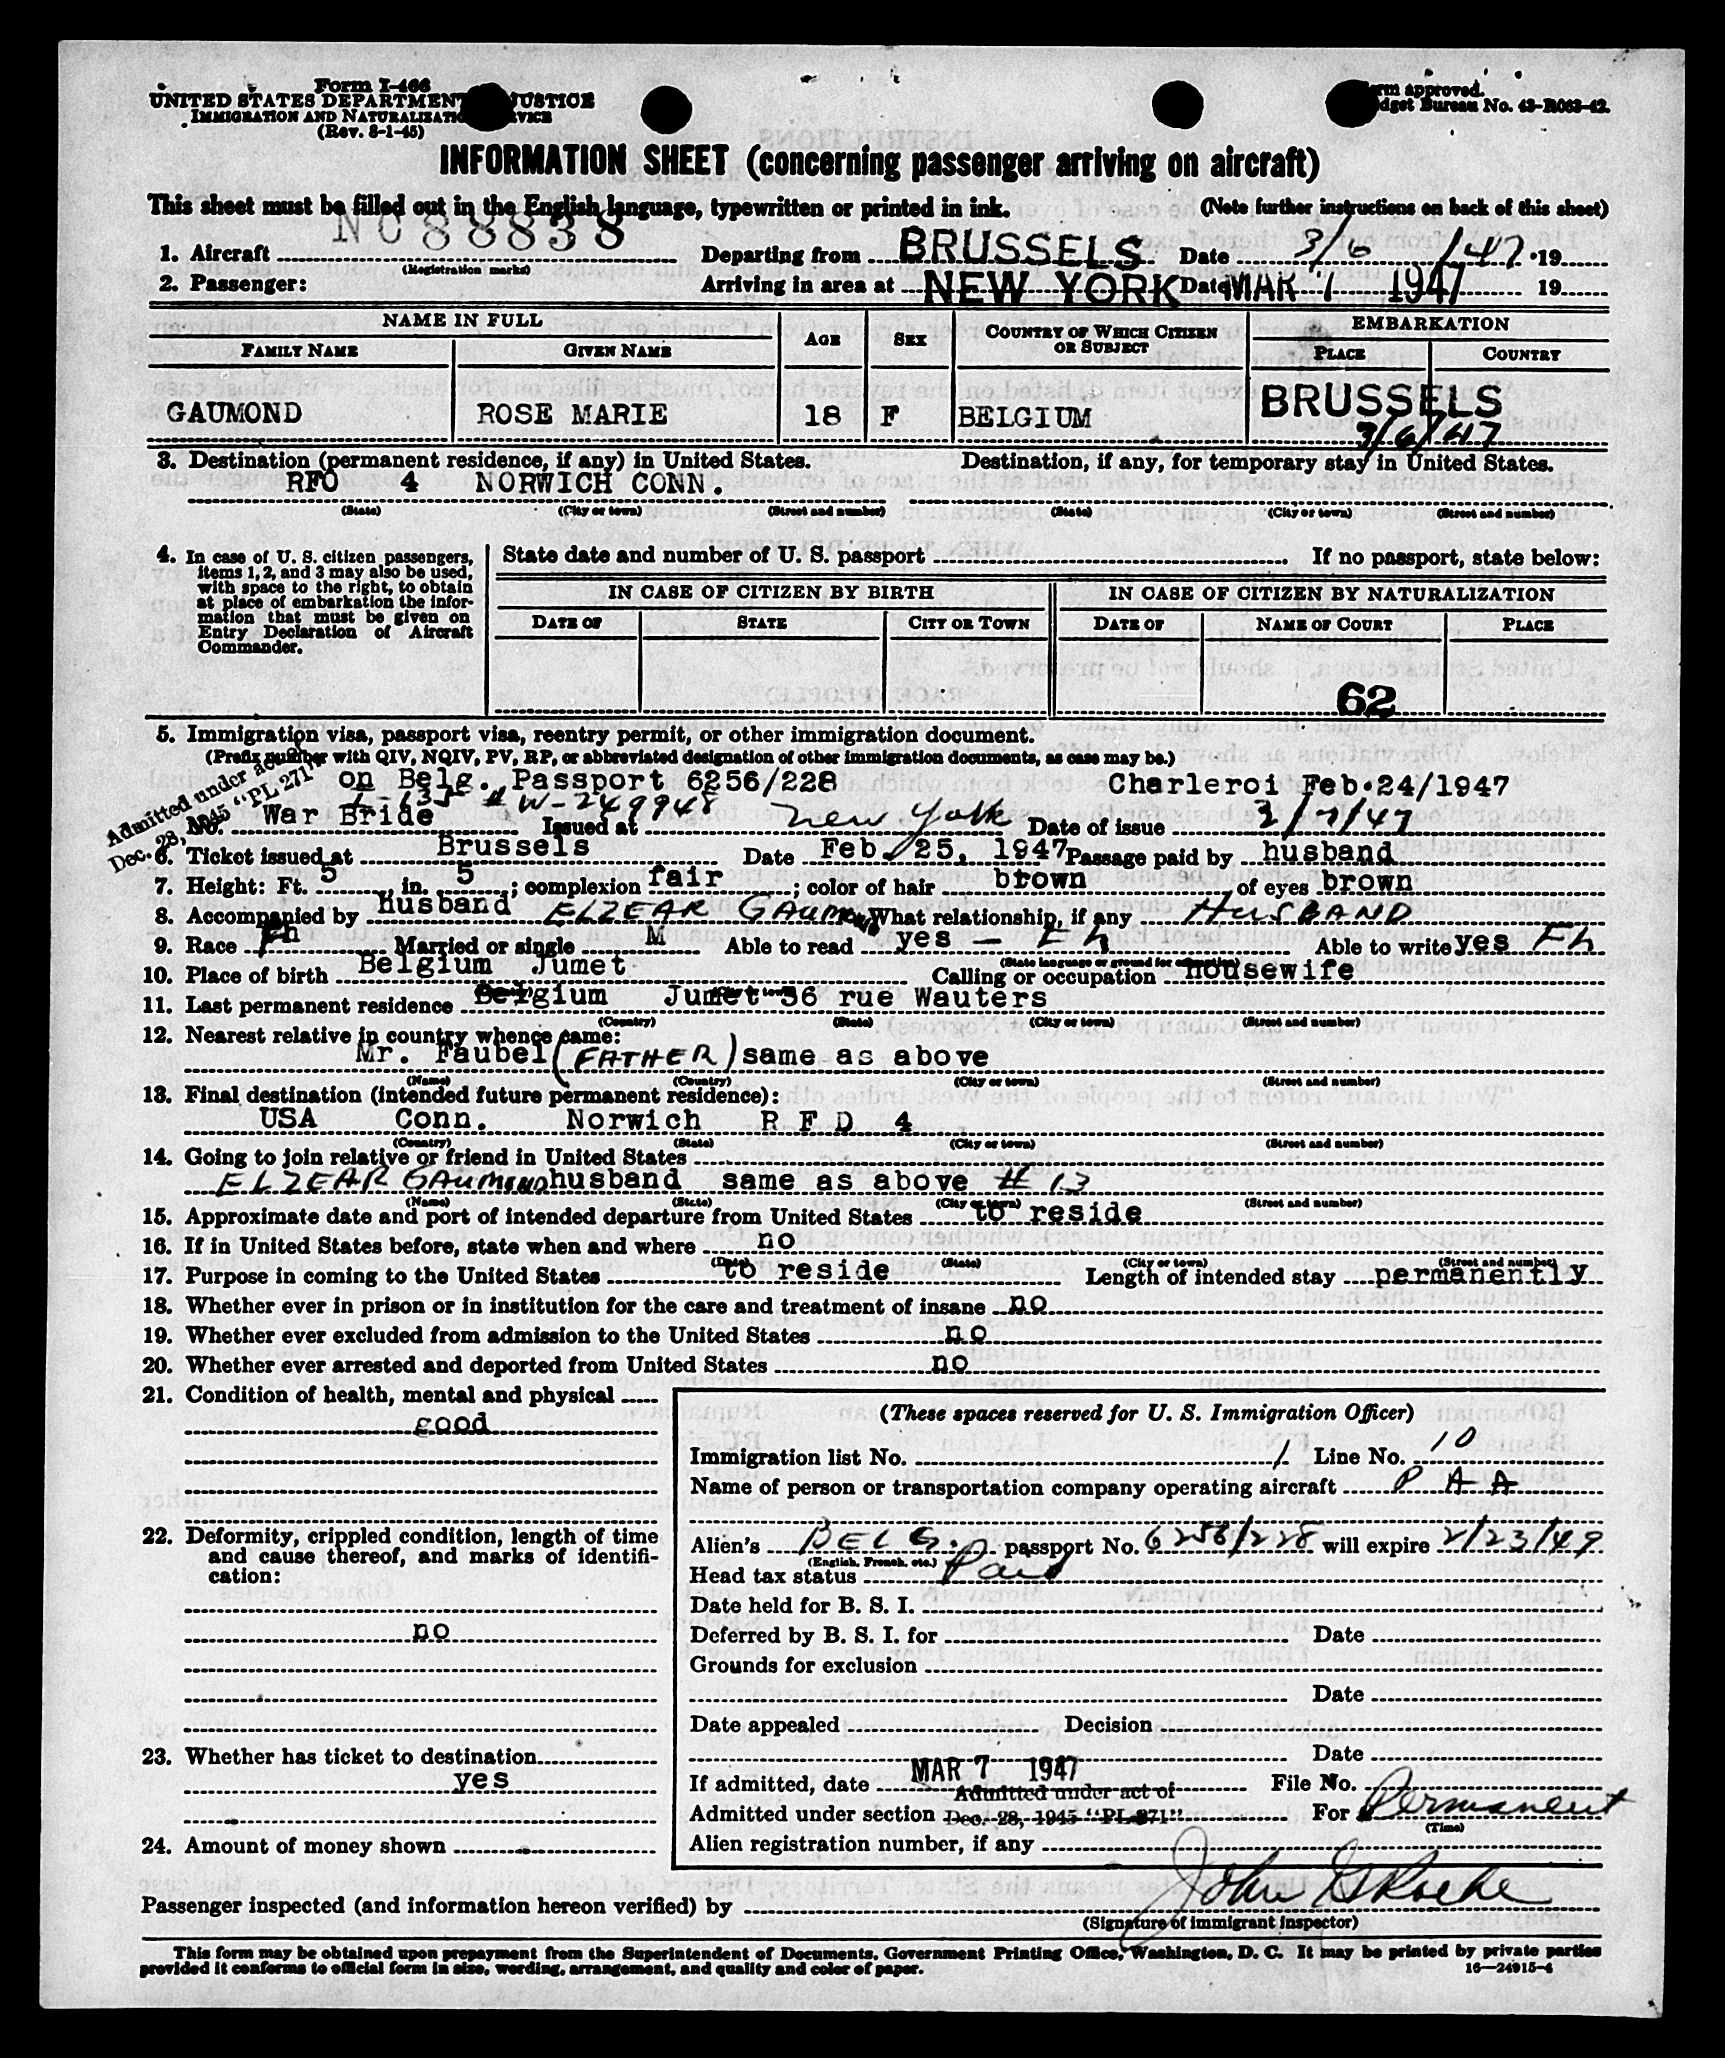 Form I-466
UNITED STATES DEPARTMENT JUSTICE
IMMIGRATION AND NATURALIZATION SERVICE
(Rev. 8-1-45)
Form approved.
Budget Bureau No. 43-R063-42.
INFORMATION SHEET (concerning passenger arriving on aircraft)
This sheet must be filled out in the English language, typewritten or printed in ink. (Note further instructions on back of this sheet)
1. Aircraft NC88838 Departing from BRUSSELS Date 3/6/47 19
(Registration marks)
2. Passenger: Arriving in area at NEW YORK Date MAR 7 1947 19
NAME IN FULL AGE SEX COUNTRY OF WHICH CITIZEN OR SUBJECT EMBARKATION
FAMILY NAME GIVEN NAME PLACE COUNTRY
GAUMOND ROSE MARIE 18 F BELGIUM BRUSSELS
3/6/47
3. Destination (permanent residence, if any) in United States. Destination, if any, for temporary stay in United States.
RFO 4 NORWICH CONN.
(State) (City or town) (Street and number) (State) (City or town) (Street and number)
4. In case of U. S. citizen passengers, items 1, 2, and 3 may also be used, with space to the right, to obtain at place of embarkation the information that must be given on Entry Declaration of Aircraft Commander.
State date and number of U. S. passport If no passport, state below:
IN CASE OF CITIZEN BY BIRTH IN CASE OF CITIZEN BY NATURALIZATION
DATE OF STATE CITY OR TOWN DATE OF NAME OF COURT PLACE
62
5. Immigration visa, passport visa, reentry permit, or other immigration document.
(Prefix number with QIV, NQIV, PV, RP, or abbreviated designation of other immigration documents, as case may be.)
Admitted under act of
Dec. 28, 1945 "PL 271"
on Belg. Passport 6256/228 Charleroi Feb.24/1947
I-135 # W-249948
No. War Bride Issued at New York Date of issue 3/7/47
6. Ticket issued at Brussels Date Feb. 25, 1947 Passage paid by husband
7. Height: Ft. 5, in. 5; complexion fair; color of hair brown of eyes brown
8. Accompanied by husband ELZEAR GAUMOND What relationship, if any HUSBAND
9. Race Fh Married or single M Able to read yes - Fh Able to write yes Fh
(State language or ground for exemption)
10. Place of birth Belgium Jumet Calling or occupation housewife
11. Last permanent residence Belgium Jumet 36 rue Wauters
(Country) (State) (City or town) (Street and number)
12. Nearest relative in country whence came:
Mr. Faubel (FATHER) same as above
(Name) (Country) (City or town) (Street and number)
13. Final destination (intended future permanent residence):
USA Conn. Norwich R F D 4
(Country) (State) (City or town) (Street and number)
14. Going to join relative or friend in United States
ELZEAR GAUMOND husband same as above # 13
(Name) (State) (City or town) (Street and number)
15. Approximate date and port of intended departure from United States to reside
16. If in United States before, state when and where no
(Date) (State) (City or town) (Street and number)
17. Purpose in coming to the United States to reside Length of intended stay permanently
18. Whether ever in prison or in institution for the care and treatment of insane no
19. Whether ever excluded from admission to the United States no
20. Whether ever arrested and deported from United States no
21. Condition of health, mental and physical
good
22. Deformity, crippled condition, length of time and cause thereof, and marks of identification:
no
23. Whether has ticket to destination
yes
24. Amount of money shown
(These spaces reserved for U. S. Immigration Officer)
Immigration list No. 1 Line No. 10
Name of person or transportation company operating aircraft P A A
Alien's BELG. passport No. 6256/228 will expire 2/23/49
(English, French, etc.)
Head tax status Paid
Date held for B. S. I.
Deferred by B. S. I. for Date
Grounds for exclusion
Date
Date appealed Decision
Date
If admitted, date MAR 7 1947 File No.
Admitted under act of
Admitted under section Dec. 28, 1945 "PL 271" For Permanent
(Time)
Alien registration number, if any
Passenger inspected (and information hereon verified) by John G Roche
(Signature of immigrant inspector)
This form may be obtained upon prepayment from the Superintendent of Documents, Government Printing Office, Washington, D. C. It may be printed by private parties
provided it conforms to official form in size, wording, arrangement, and quality and color of paper. 16—24915-4